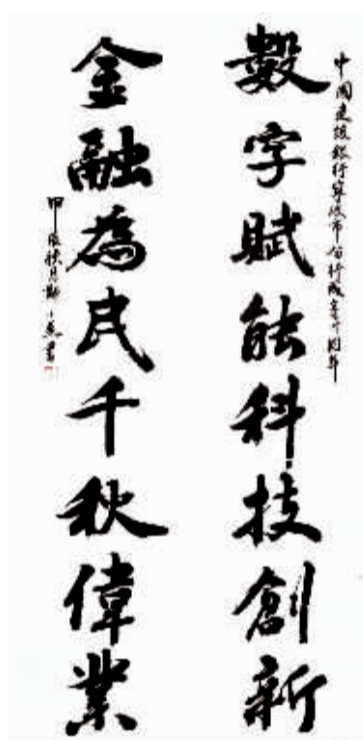 中國建設銀行寧波市分行成立十周年
數字賦能科技創新
金融為民千秋偉業
甲辰秋月書